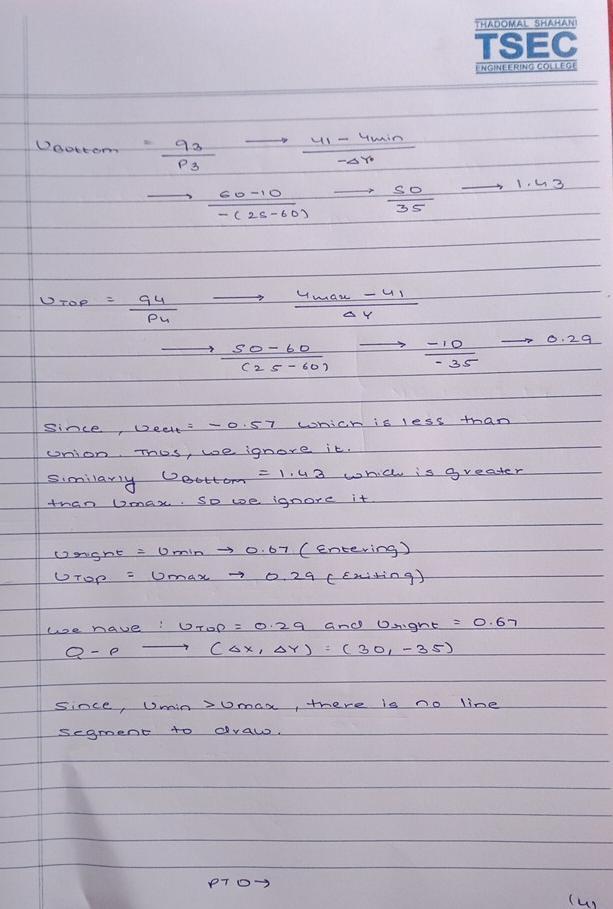 THADOMAL SHAHANI
TSEC
ENGINEERING COLLEGE
UBottom = q3/P3 → y1 - ymin/-ΔY
→ 60-10/-(25-60) → 50/35 → 1.43
UTOP = q4/P4 → ymax - y1/ΔY
→ 50-60/(25-60) → -10/-35 → 0.29
Since, Uleft = -0.57 which is less than
Umin. Thus, we ignore it.
Similarly UBottom = 1.43 which is greater
than Umax. So we ignore it
Uright = Umin → 0.67 (Entering)
UTOP = Umax → 0.29 (Exiting)
We have : UTOP = 0.29 and Uright = 0.67
Q-P → (ΔX, ΔY) = (30, -35)
Since, Umin > Umax, there is no line
segment to draw.
PTO→
(4)